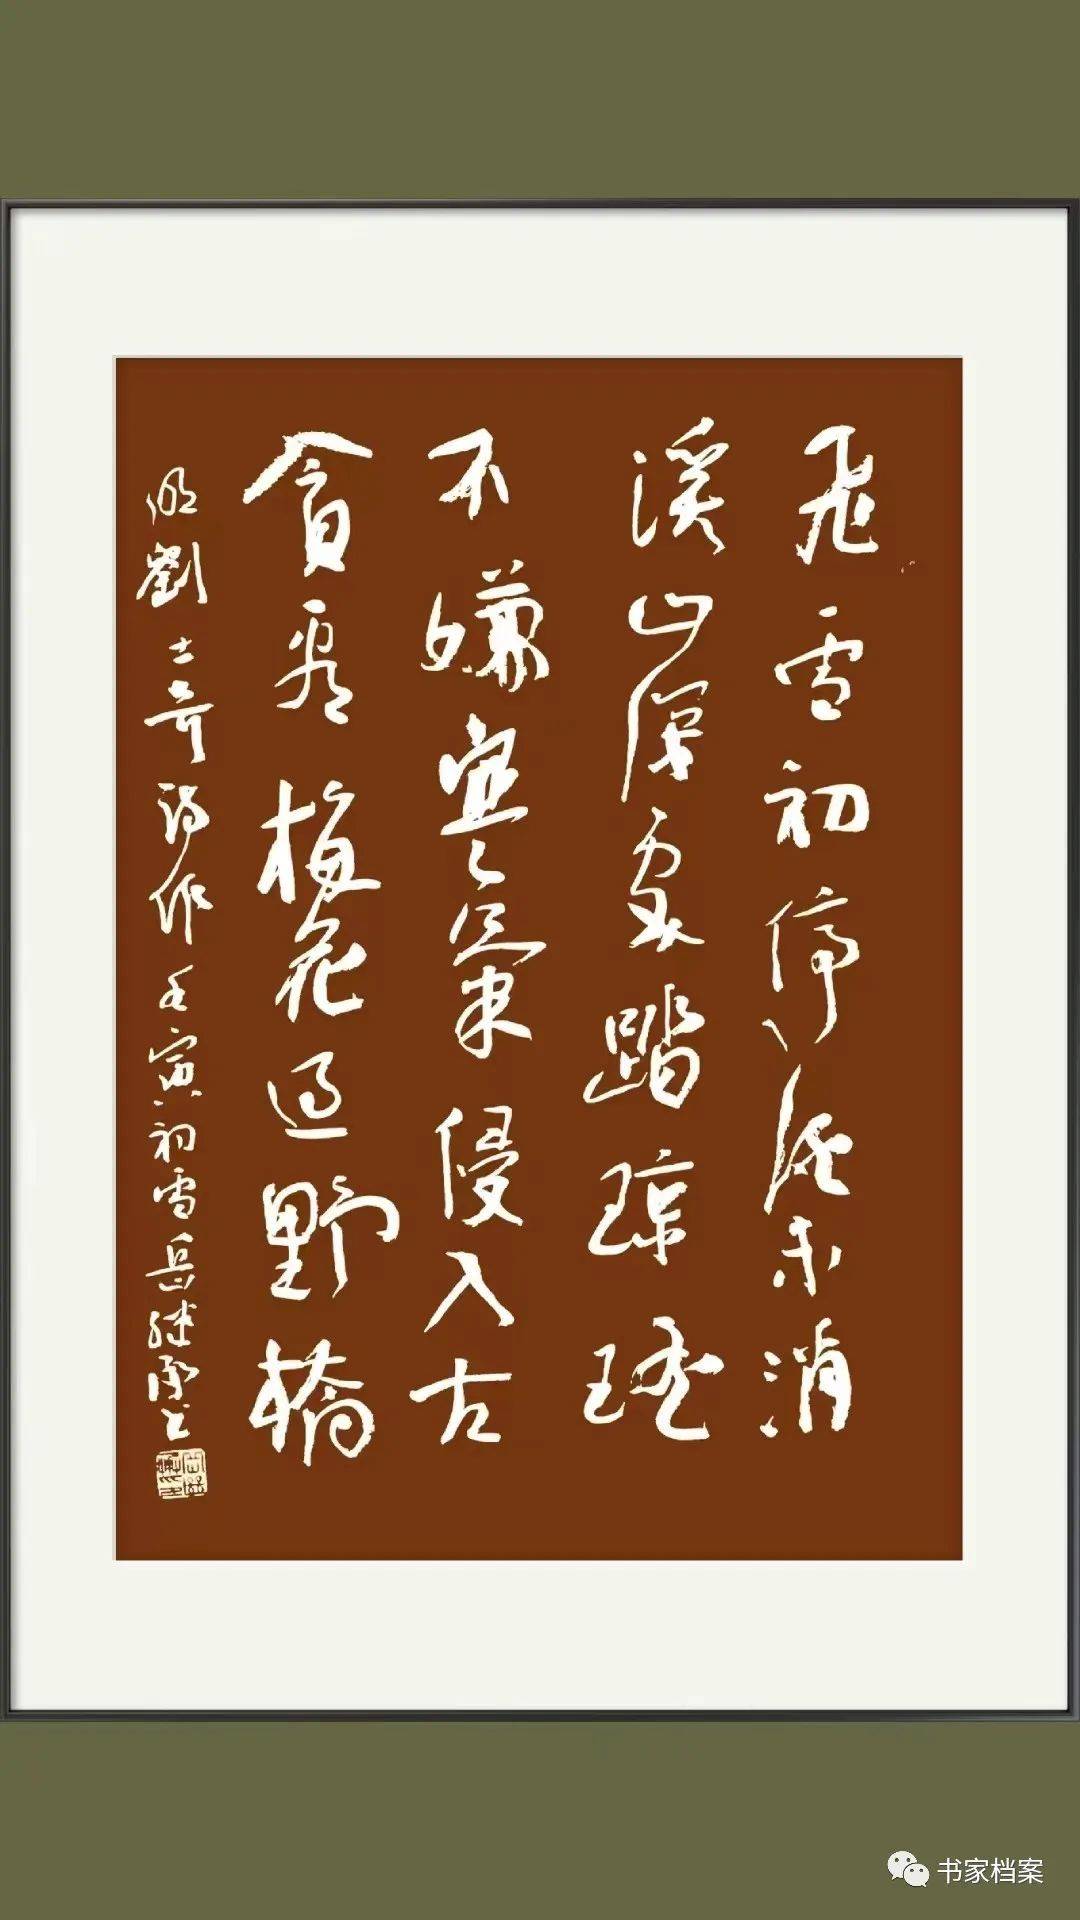 飛雪初停酒未消
溪山深處踏琼瑤
不嫌寒氣侵入古
貪看梅花過野橋
明劉士奇詩作壬寅初雪岳继承书
书家档案